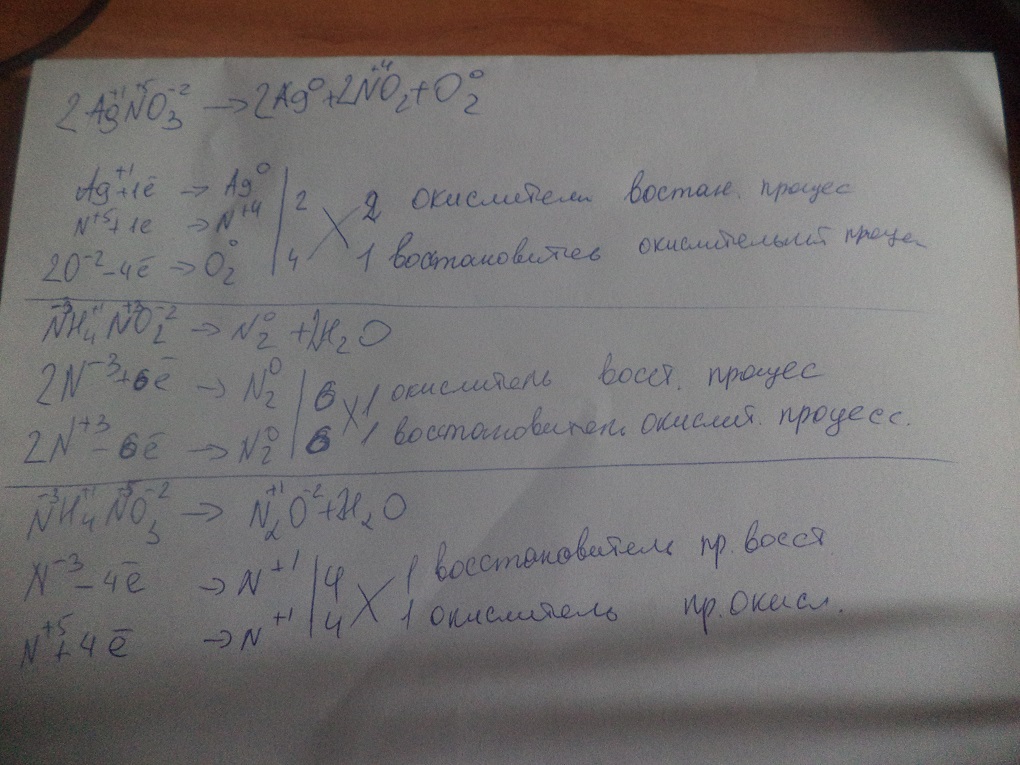 2Ag⁺¹N⁺⁵O₃⁻² → 2Ag⁰ + 2N⁺⁴O₂ + O₂⁰
Ag⁺¹+1ē → Ag⁰ | 2 2 окислители востан. процес
N⁺⁵+1e → N⁺⁴
2O⁻²-4ē → O₂⁰ | 4 1 восстановитель окислительный процес
N⁻³H₄⁺¹N⁺³O₂⁻² → N₂⁰ + 2H₂O
2N⁻³+6ē → N₂⁰ | 6 1 окислитель восст. процес
2N⁺³-6ē → N₂⁰ | 6 1 восстановитель окислит. процесс.
N⁻³H₄⁺¹N⁺⁵O₃⁻² → N₂⁺¹O⁻²+H₂O
N⁻³-4ē → N⁺¹ | 4 1 восстановитель пр. восст
N⁺⁵+4ē → N⁺¹ | 4 1 окислитель пр. окисл.